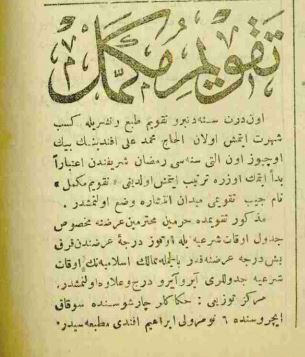 تقویم مکمل
اون درت سنه‌دنبرو تقویم طبع و نشریله کسب
شهرت ایتمش اولان الحاج محمد علی افندینك بیك
اوچیوز اون التی سنه‌سی رمضان شریفندن اعتباراً
بدأ ایتمك اوزره ترتیب ایتمش اولدیغی «تقویم مکمل»
نام جیب تقویمی میدان انتشاره وضع اولنمشدر.
مذکور تقویمده حرمین محترمین عرضنه مخصوص
جدول اوقات شرعیه یله اوتوز درجۀ عرضندن قرق
بش درجه عرضنه قدر بالجمله ممالك اسلامیه‌نك اوقات
شرعیه جدوللری آیرو آیرو درج و علاوه اولنمشدر.
مرکز توزیعی : حکاکلر چارشوسنده سوقاق
ایچروسنده ٦ نومرولی ابراهیم افندی مطبعه‌سیدر.